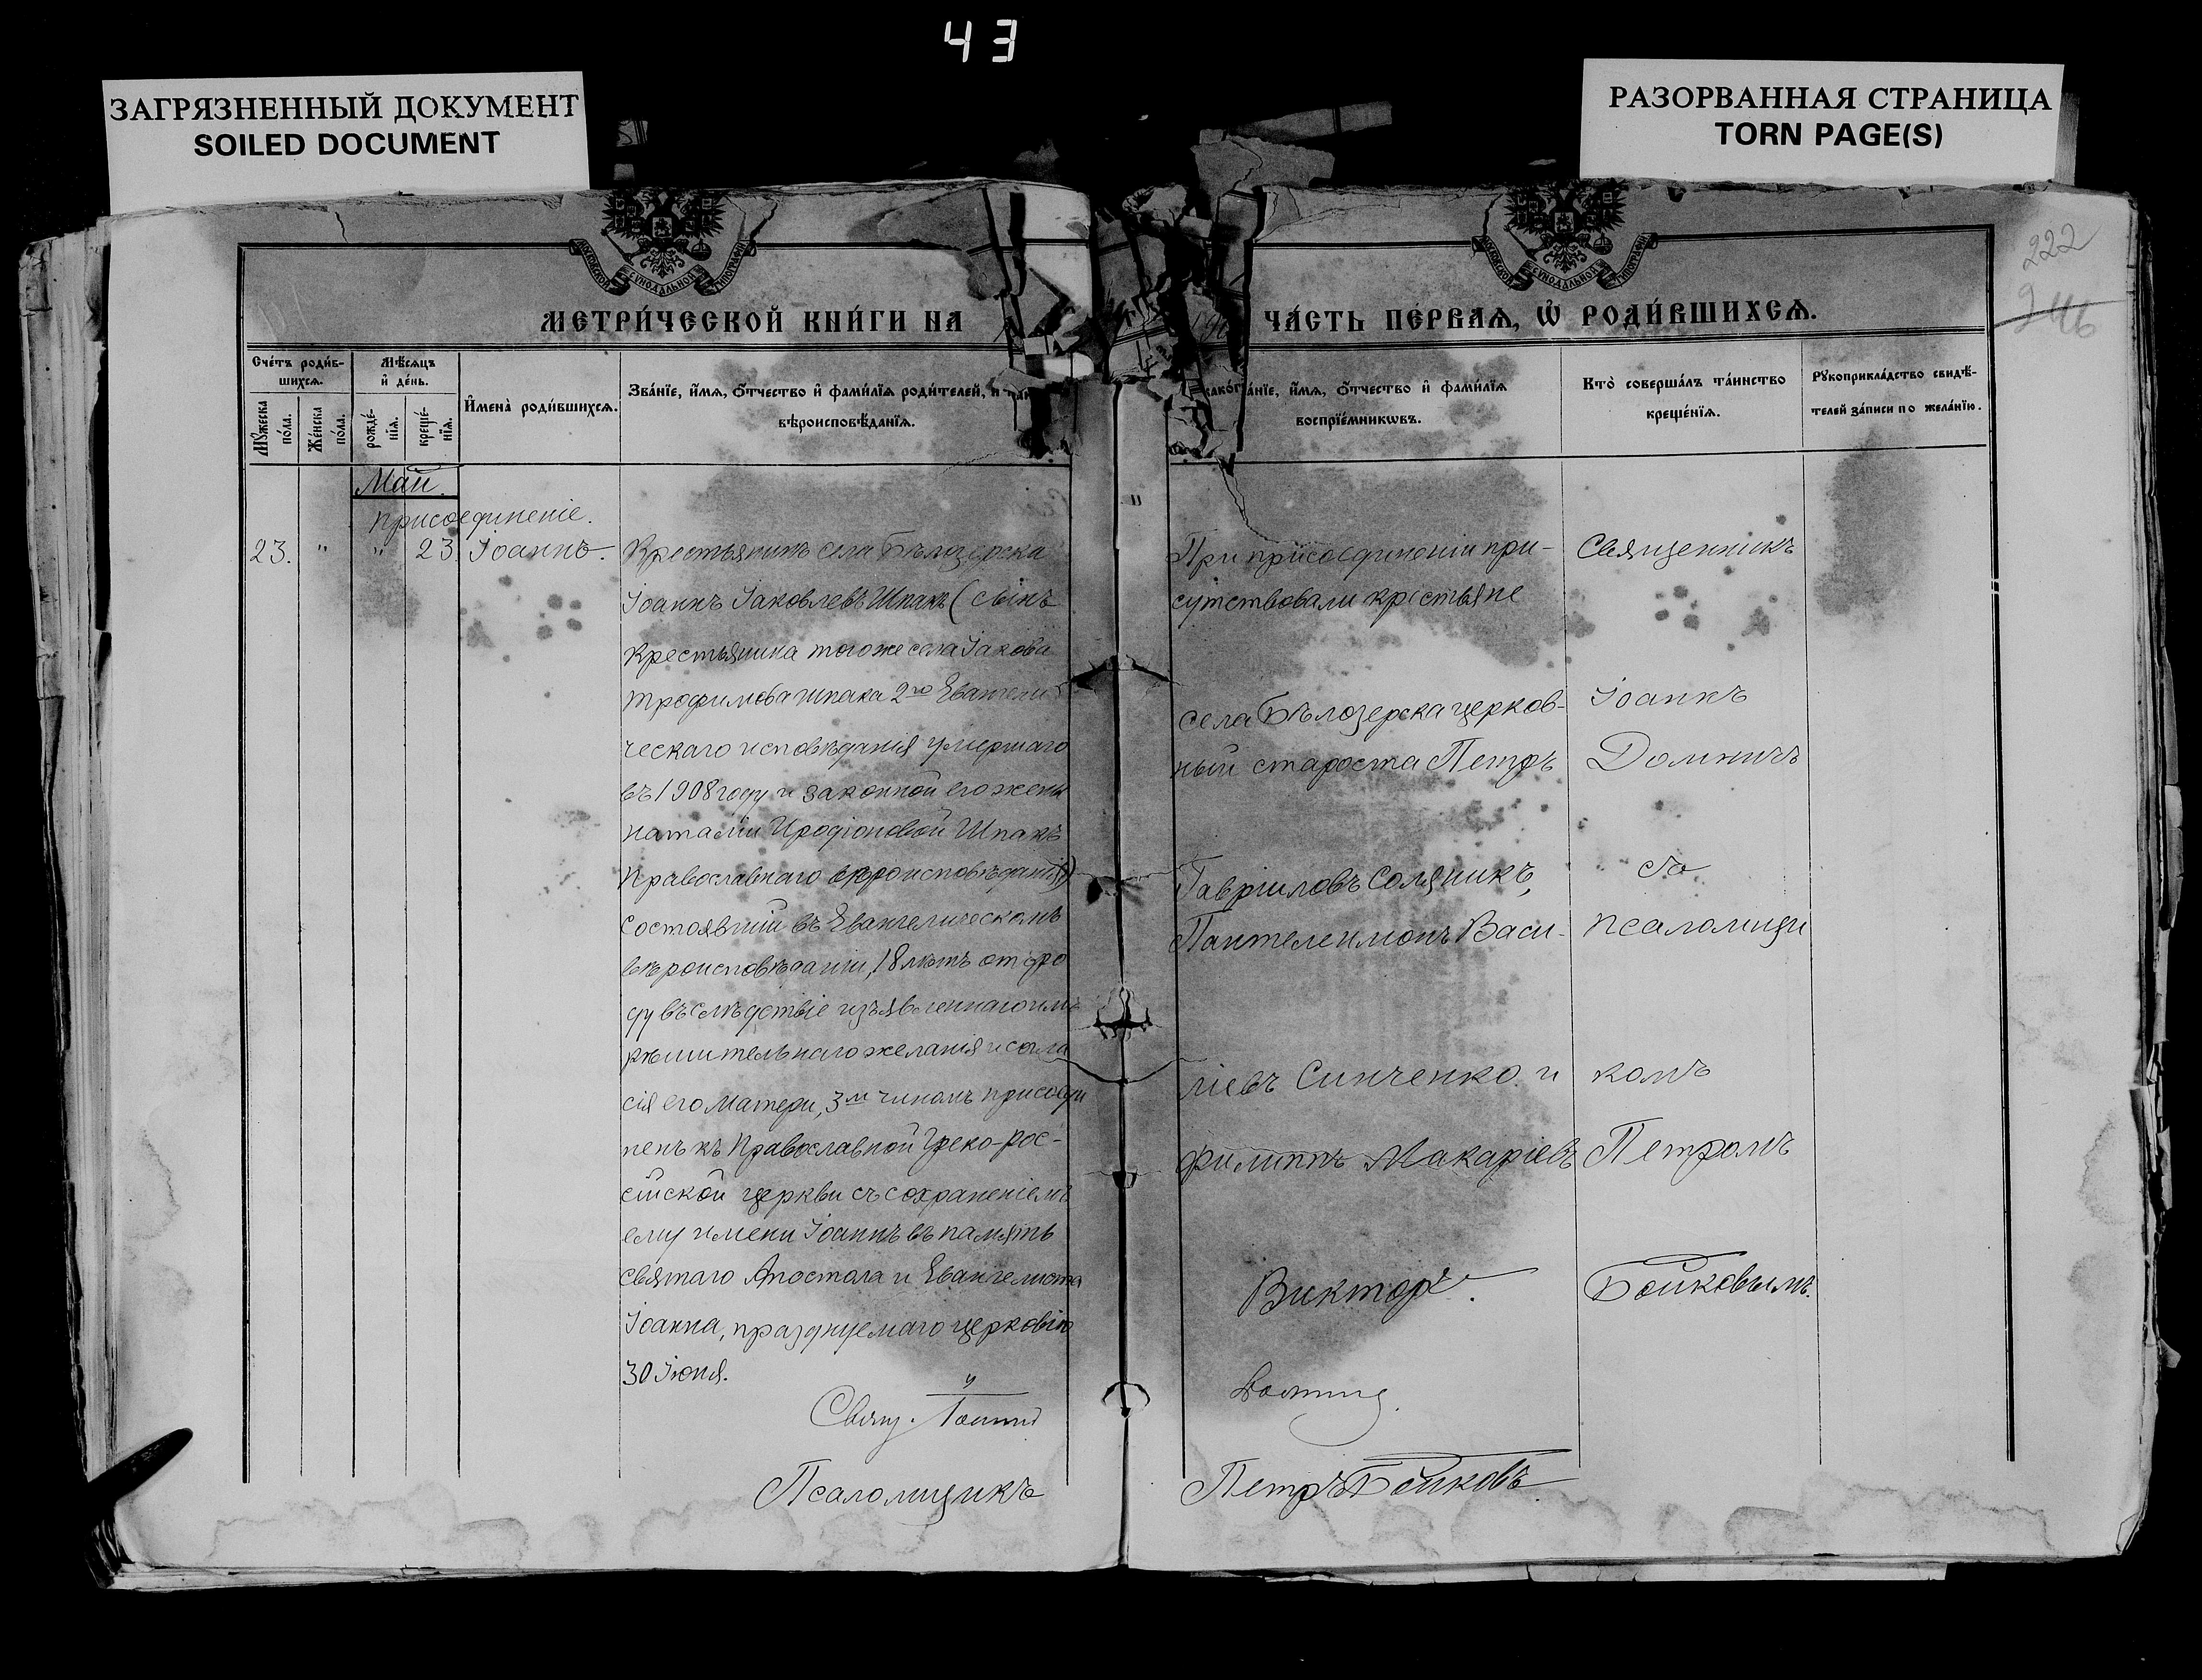 43
ЗАГРЯЗНЕННЫЙ ДОКУМЕНТ
SOILED DOCUMENT
РАЗОРВАННАЯ СТРАНИЦА
TORN PAGE(S)
МОСКОВСКОЙ СУНОДАЛЬНОЙ ТИПОГРАФІИ
МОСКОВСКОЙ СУНОДАЛЬНОЙ ТИПОГРАФІИ
222
246
МЕТРИ́ЧЕСКОЙ КНИ́ГИ НА
ЧА́СТЬ ПЕ́РВАѦ, Ѡ҆ РОДИ́ВШИХСѦ.
Сче́тъ роди́в-
шихсѧ.
Мꙋ́жеска по́ла.
Же́нска по́ла.
Мѣ́сѧцъ
и҆ де́нь.
рожде́-
нїѧ.
креще́-
нїѧ.
И҆мена̀ роди́вшихсѧ.
Зва́нїе, и҆́мѧ, ѻ҆́тчество и҆ фами́лїѧ роди́телей, и҆
вѣроисповѣ́данїѧ.
и҆́мѧ, ѻ҆́тчество и҆ фами́лїѧ
воспрїе́мникѡвъ.
Кто̀ соверша́лъ та́инство
креще́нїѧ.
Рꙋкоприкла́дство свидѣ́-
телей за́писи по жела́нїю.
Май.
присоединеніе.
23. " " 23. Іоаннъ.
Крестьянинъ села Бѣлозерска
Іоаннъ Іаковлевъ Шпакъ (сынъ
крестьянина того же села Іакова
Трофимова Шпака 2го Евангели
ческаго исповѣданія умершаго
въ 1908 году и законной его жены
Наталіи Иродіоновой Шпакъ
Православнаго вѣроисповѣданія)
состоявшій въ Евангелическомъ
вѣроисповѣданіи, 18 лѣтъ отъ ро
ду вслѣдствіе изъявленнаго имъ
рѣшительнаго желанія и согла
сія его матери, 3м чиномъ присоеди
ненъ къ Православной Греко-рос-
сійской церкви съ сохраненіемъ
ему имени Іоаннъ въ память
святаго Апостола и Евангелиста
Іоанна, празднуемаго церковію
30 Іюня.
Свящ.
Псаломщикъ
При присоединеніи при-
сутствовали крестьяне
села Бѣлозерска церков-
ный староста Петръ
Гавріиловъ Соляникъ,
Пантелеимонъ Васи-
ліевъ Синченко и
Филиппъ Макаріевъ
Викторъ.
Петръ Бойковъ
Священникъ
Іоаннъ
Домничъ
съ
псаломщи
комъ
Петромъ
Бойковымъ.